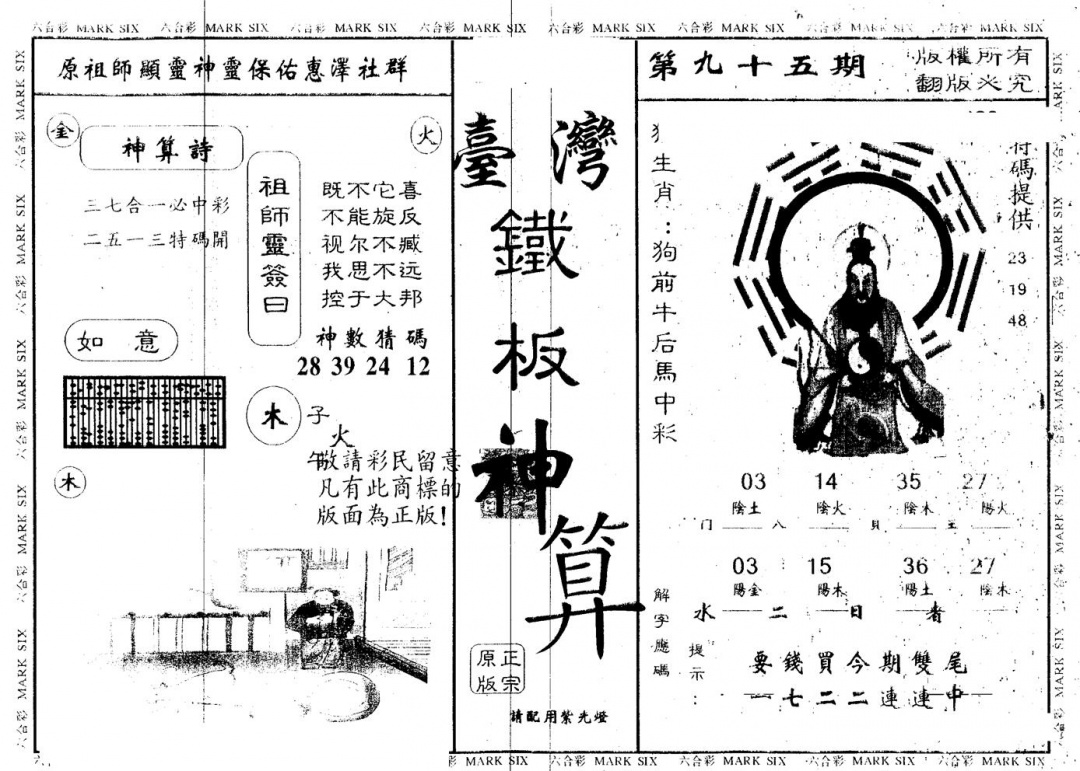 六合彩 MARK SIX 六合彩 MARK SIX 六合彩 MARK SIX 六合彩 MARK SIX 六合彩 MARK SIX 六合彩 MARK SIX 六合彩 MARK SIX 六合彩 MARK SIX
原祖師顯靈神靈保佑惠澤社群
金
神算詩
火
三七合一必中彩
二五一三特碼開
祖師靈簽曰
既不它喜
不能旋反
视尔不臧
我思不远
控于大邦
神數猜碼
28 39 24 12
如意
木
子
火
午
木
敬請彩民留意
凡有此商標的
版面為正版!
臺灣
鐵板神算
正宗
原版
請配用紫光燈
第九十五期
版權所有
翻版必究
生肖:狗前牛后馬中彩
特碼提供
23
19
48
03 14 35 27
陰土 陰火 陰木 陽火
门 八 貝 王
03 15 36 27
陽金 陽木 陽土 陰木
水 二 日 者
解字應碼
提示:
要錢買今期雙尾
一七二二連連中
MARK SIX 六合彩 MARK SIX 六合彩 MARK SIX 六合彩 MARK SIX 六合彩 MARK SIX